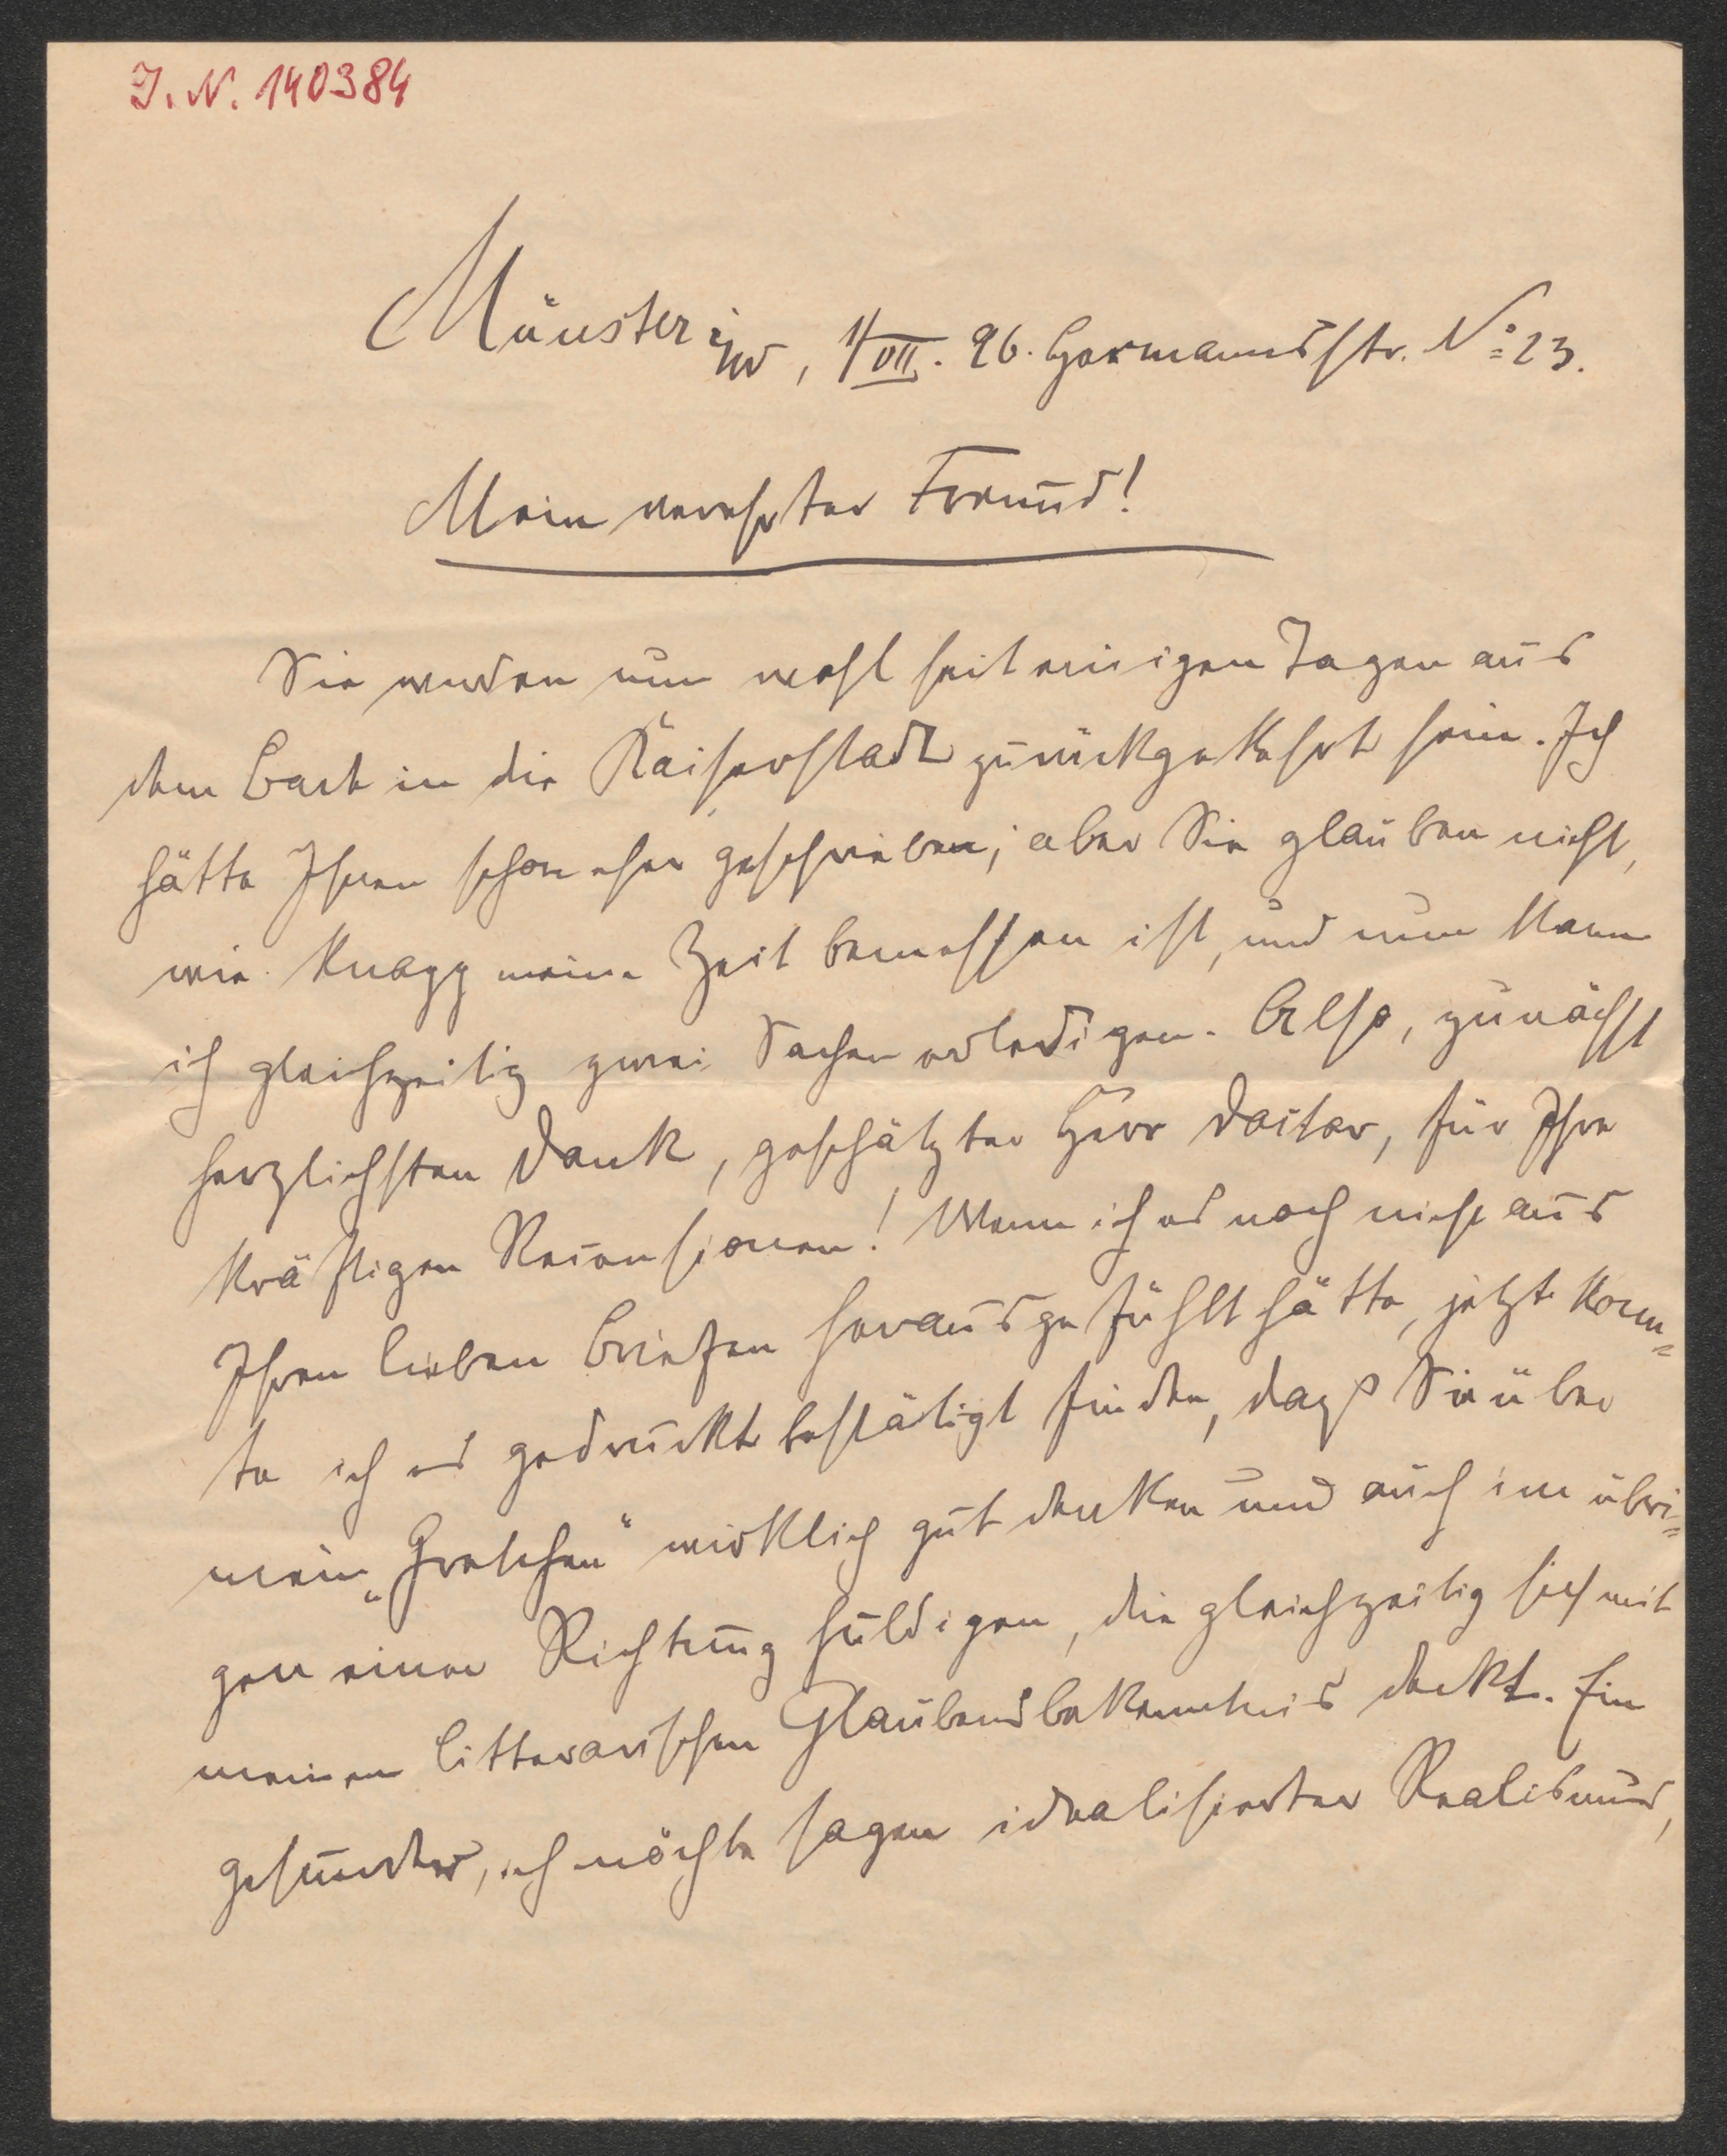 J. N. 140384
Münster i/W, 1/VII. 96. Hermannsstr. No 23.
Mein verehrter Freund!
Sie werden nun wohl seit einigen Tagen aus
dem Bade in die Kaiserstadt zurückgekehrt sein. Ich
hätte Ihnen schon eher geschrieben; aber Sie glauben nicht,
wie knapp meine Zeit bemessen ist, und nun kann
ich gleichzeitig zwei Sachen erledigen. Also, zunächst
herzlichsten Dank, geschätzter Herr Doctor, für Ihre
kräftigen Recensionen! Wenn ich es noch nicht aus
Ihren lieben Briefen herausgefühlt hätte, jetzt konn-
te ich es gedruckt bestätigt finden, dass Sie über
mein „Gretchen“ wirklich gut denken und auch im übri-
gen einer Richtung huldigen, die gleichzeitig sich mit
meinem litterarischen Glaubensbekenntnis deckt. Ein
gesunder, ich möchte sagen idealisierter Realismus,